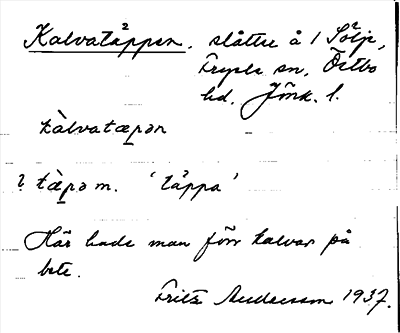 Kalvatäppan. slåtter å 1 Sölje,
Fryele sn, Östbo
hd. Jönk. l.
kàlvatæpən
? tæ̀pə m. 'täppa'
Här hade man förr kalvar på
bete.
Fritz Andersson 1937.